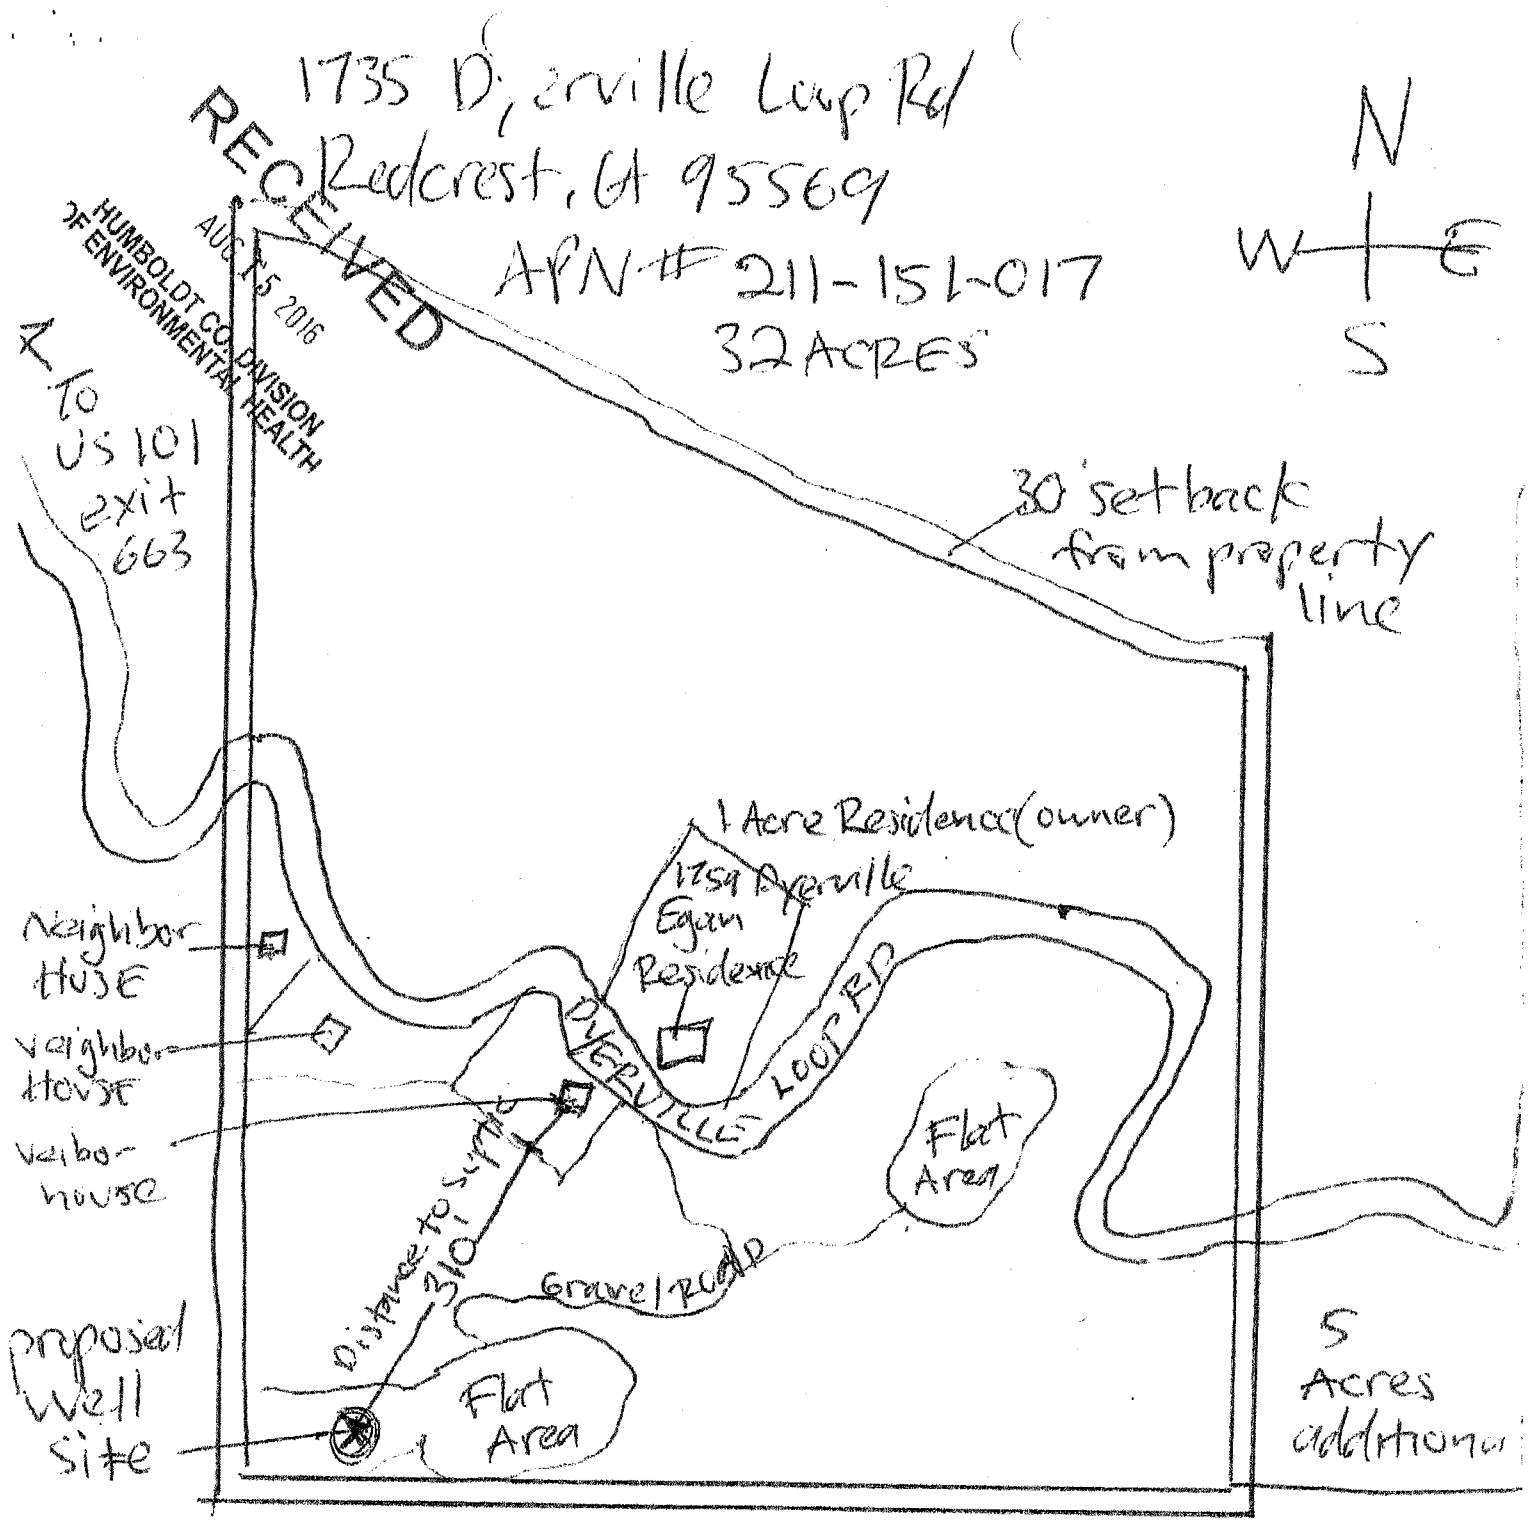 1735 Dyerville Loop Rd
Redcrest, CA 95569
APN # 211-151-017
32 ACRES
N
W E
S
RECEIVED
AUG 15 2016
HUMBOLDT CO. DIVISION
OF ENVIRONMENTAL HEALTH
To
US 101
exit
663
30' setback
from property
line
1 Acre Residence (owner)
1759 Dyerville
Egan
Residence
Neighbor
HUSE
Neighbor
HOUSE
Neibor
house
DYERVILLE LOOP RD
Flat
Area
Distance to septic
310'
Gravel ROAD
proposed
Well
Site
Flat
Area
5
Acres
additional